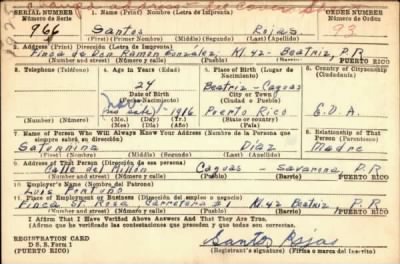 SERIAL NUMBER 1. Name (Print) Nombre (Letra de Imprenta) ORDER NUMBER
Número de Serie Número de Orden
966 Santos Rojas 93
(First) (Primer Nombre) (Middle) (Segundo) (Last) (Apellido)
2. Address (Print) Dirección (Letra de Imprenta)
Finca de Don Ramon Gonzalez, Kl. 42- Beatriz, P.R
(Number) (Número) (Street) (Número y calle) (Town) (Pueblo) (Barrio) PUERTO RICO
3. Telephone (Teléfono) 4. Age in Years (Edad) 5. Place of Birth (Lugar de Nacimiento) 6. Country of Citizenship (Ciudadanía)
24 Beatriz - Caguas
Date of Birth City or Town
(Ciudad o Pueblo)
1-1916 Puerto Rico E.U.A.
(Number) (Número) (Mo.) (Mes) (Day) (Día) (Yr.) (Año)
7. Name of Person Who Will Always Know Your Address (Nombre de la Persona que siempre sabrá su dirección) 8. Relationship of That Person (Parentesco)
Saturnina Diaz Madre
(First) (Primer Nombre) (Middle) (Segundo) (Last) (Apellido)
9. Address of That Person (Dirección de esa persona)
Calle del Millon Caguas - Savarona P.R
(Number) (Número) (Street) (Número y calle) (Town) (Pueblo) (Barrio) PUERTO RICO
10. Employer's Name (Nombre del Patrono)
Luis
11. Place of Employment or Business (Dirección del empleo o negocio)
Finca St. Rosa, Carretera #1 Kl. 42 Beatriz P.R
(Number) (Número) (Street) (Número y calle) (Town) (Pueblo) (Barrio) PUERTO RICO
I Affirm That I Have Verified Above Answers and That They Are True.
(Afirmo que he verificado las contestaciones que preceden y que todas son correctas.)
REGISTRATION CARD
D. S. S. Form 1
(PUERTO RICO)
Santos Rojas
(Registrant's signature) (Firma o marca del Inscrito)